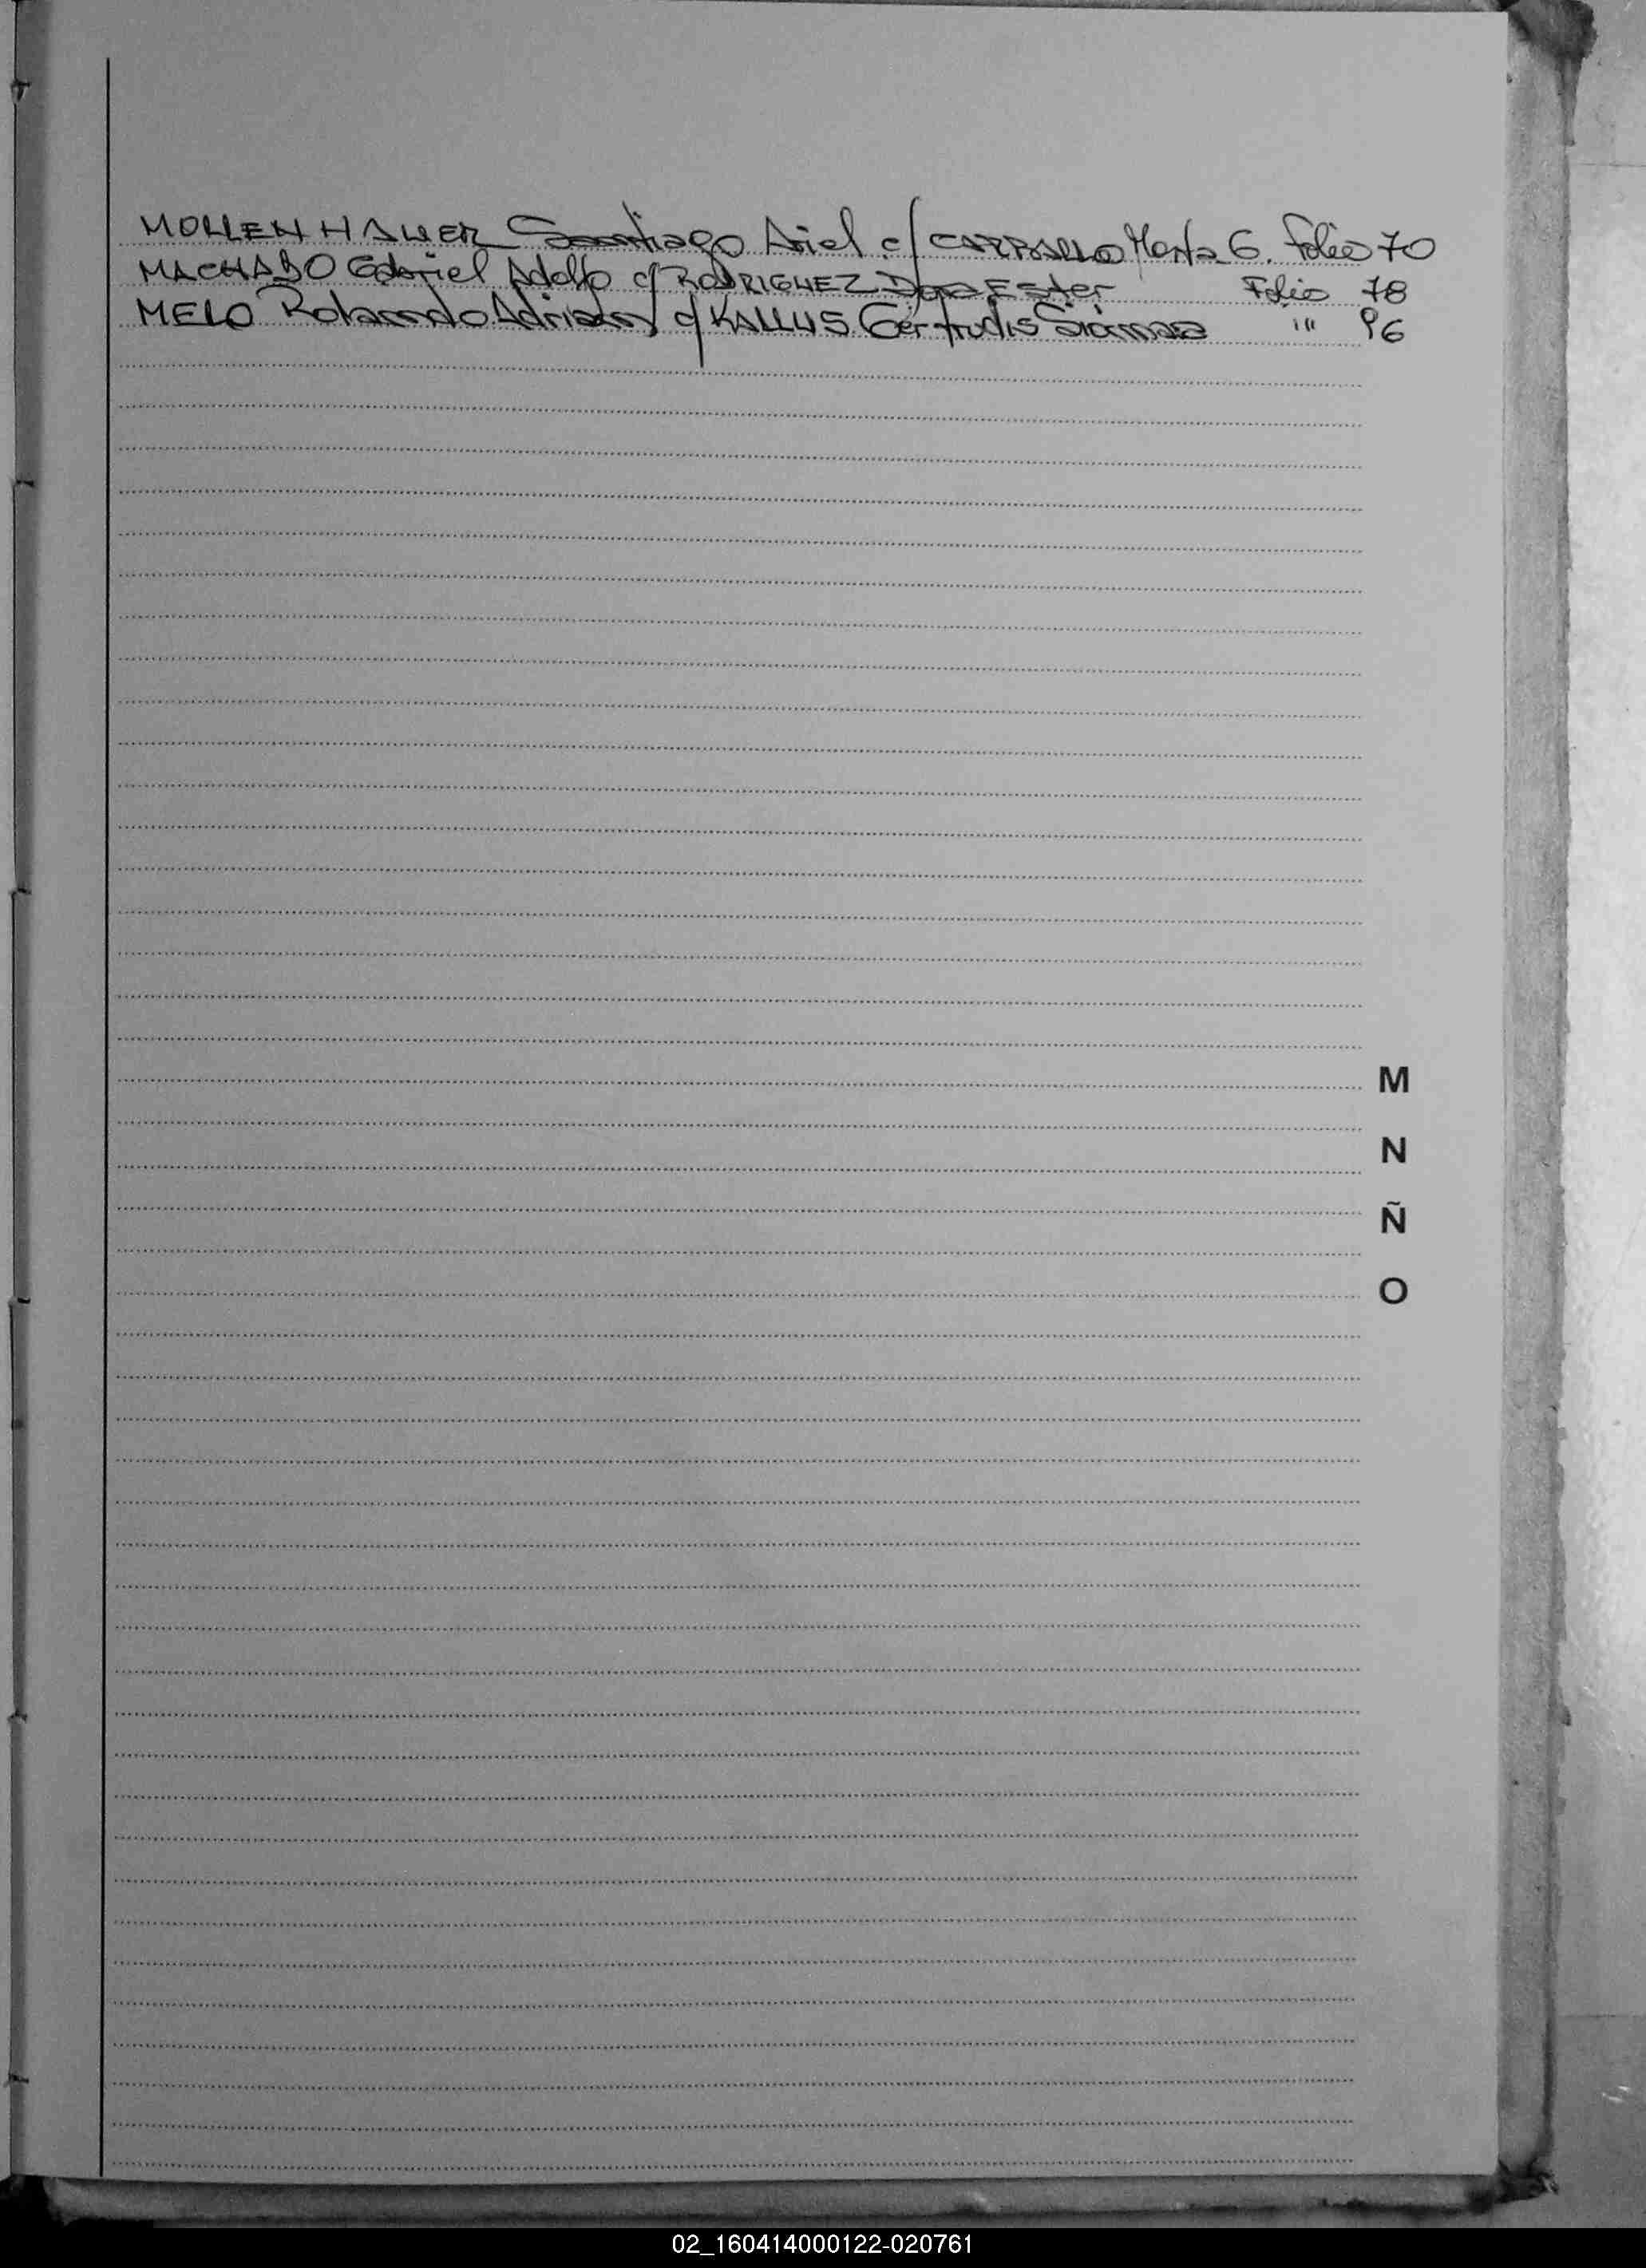 MOLLENHAUER Santiago Ariel c/ CARBALLO Marta G. Folio 70
MACHADO Gabriel Adolfo c/ RODRIGUEZ Ester Folio 78
MELO Rolando Adrian c/ KALLUS Gertrudis "" 96
M
N
Ñ
O
02_160414000122-020761